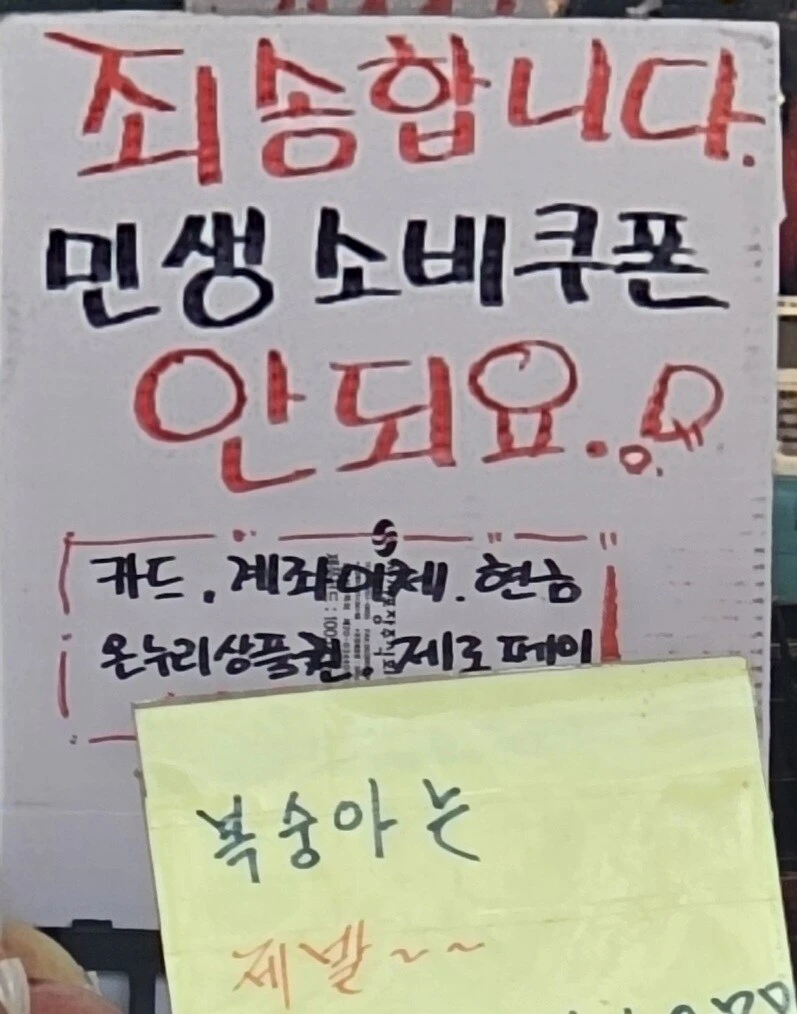 죄송합니다.
민생 소비쿠폰
안되요.
카드. 계좌이체. 현금
온누리상품권. 제로페이
복숭아는
제발~~